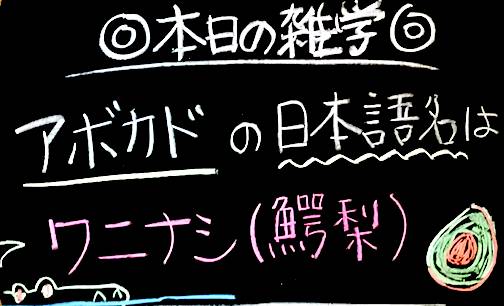 ◎本日の雑学◎
アボカドの日本語名は
ワニナシ(鰐梨)